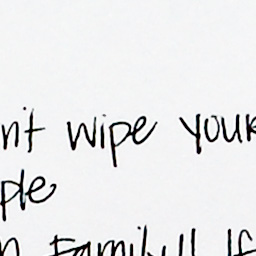 nt wipe your
ple
n Family!! If